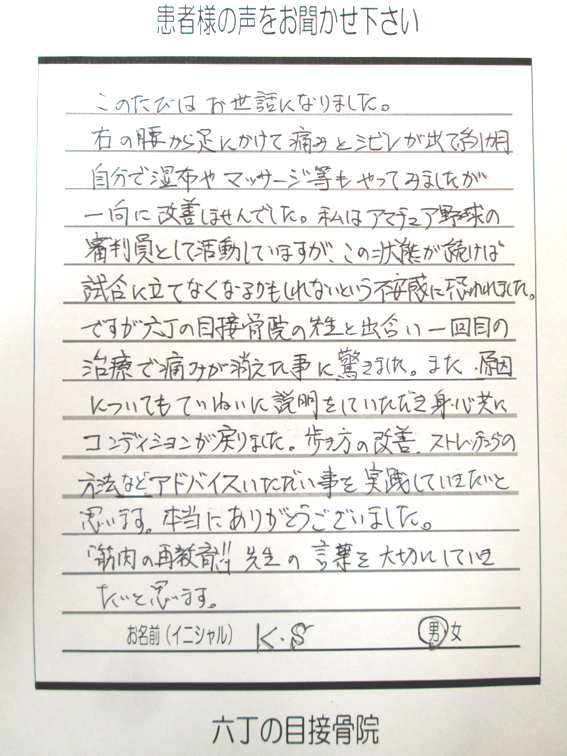 患者様の声をお聞かせ下さい
このたびは お世話になりました。
右の腰から足にかけて痛みとシビレが出て約1ヶ月
自分で湿布や マッサージ等も やってみましたが
一向に改善しませんでした。私はアマチュア野球の
審判員として活動していますが、この状態が続けば
試合に立てなくなるかもしれないという不安感に
ですが六丁の目接骨院の先生と出合い一回目の
治療で痛みが消えた事に驚きました。また、原因
についてもていねいに説明をしていただき身心共に
コンディションが戻りました。歩き方の改善、ストレッチングの
方法などアドバイスいただいた事を実践していきたいと
思います。本当にありがとうございました。
"筋肉の再教育!!"先生の言葉を大切にしていき
たいと思います。
お名前（イニシャル） K.S 男 女
六丁の目接骨院